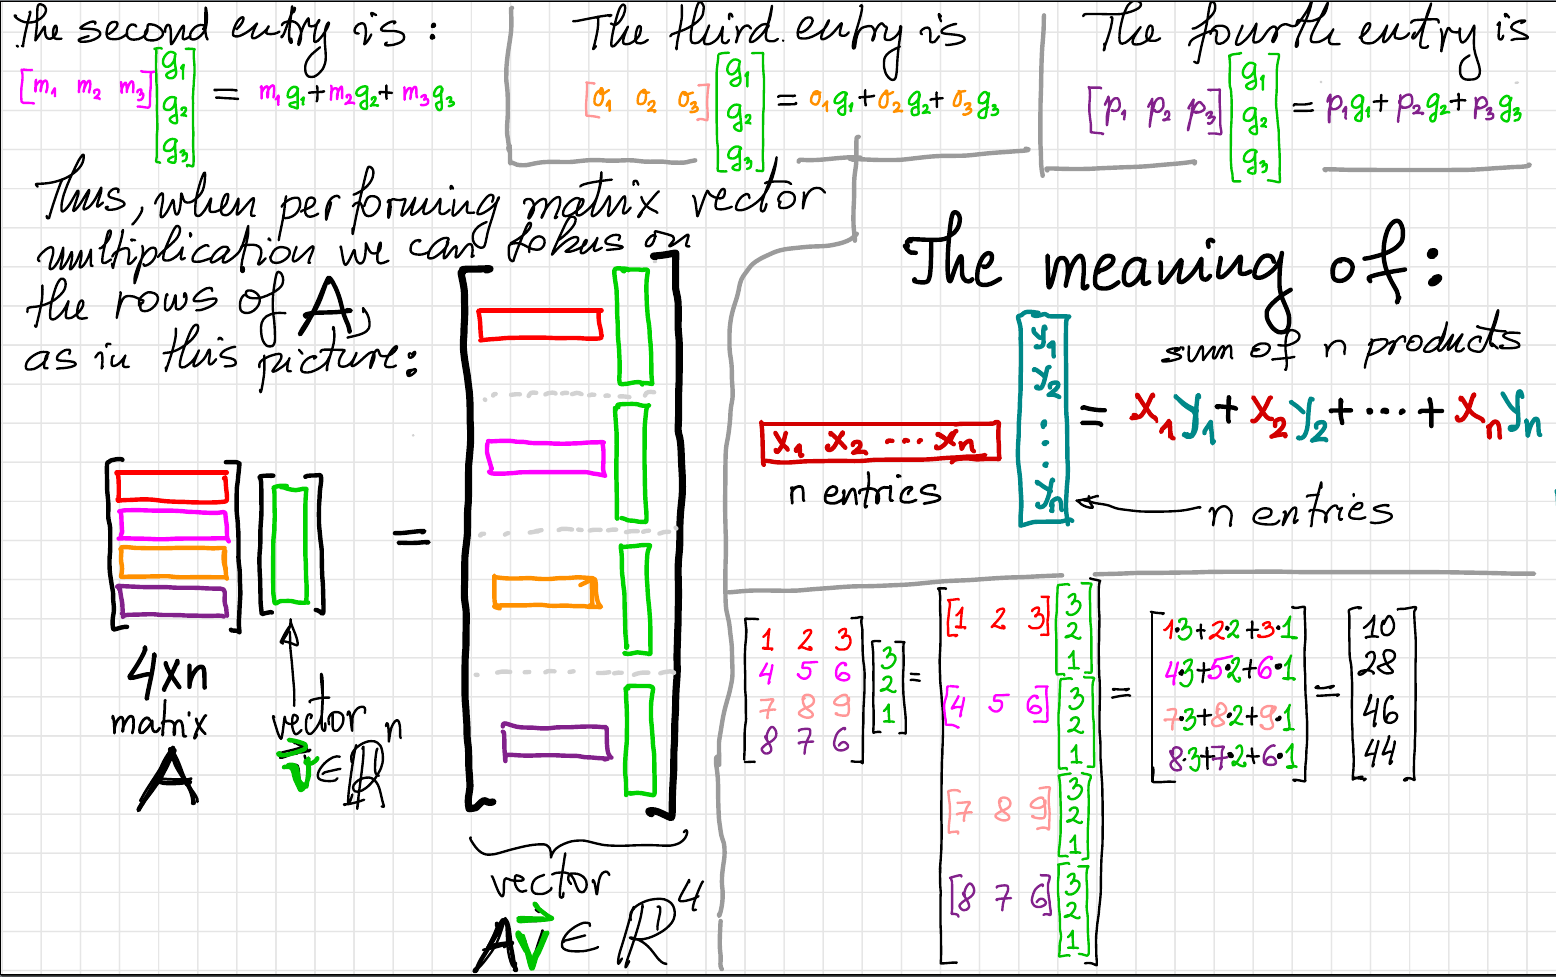 the second entry is:
[m₁ m₂ m₃] [g₁ g₂ g₃] = m₁g₁+m₂g₂+m₃g₃
The third entry is
[σ₁ σ₂ σ₃] [g₁ g₂ g₃] = σ₁g₁+σ₂g₂+σ₃g₃
The fourth entry is
[p₁ p₂ p₃] [g₁ g₂ g₃] = p₁g₁+p₂g₂+p₃g₃
Thus, when performing matrix vector
multiplication we can fokus on
the rows of A,
as in this picture:
=
4xn
matrix
A
vector
v⃗ ∈ ℝⁿ
vector
Av⃗ ∈ ℝ⁴
The meaning of:
sum of n products
x₁ x₂ ⋯ xₙ
y₁
y₂
⋮
yₙ
= x₁y₁+x₂y₂+⋯+xₙyₙ
n entries
n entries
[1 2 3
4 5 6
7 8 9
8 7 6]
[3
2
1]
=
[1 2 3] [3 2 1]
[4 5 6] [3 2 1]
[7 8 9] [3 2 1]
[8 7 6] [3 2 1]
=
1·3+2·2+3·1
4·3+5·2+6·1
7·3+8·2+9·1
8·3+7·2+6·1
=
10
28
46
44